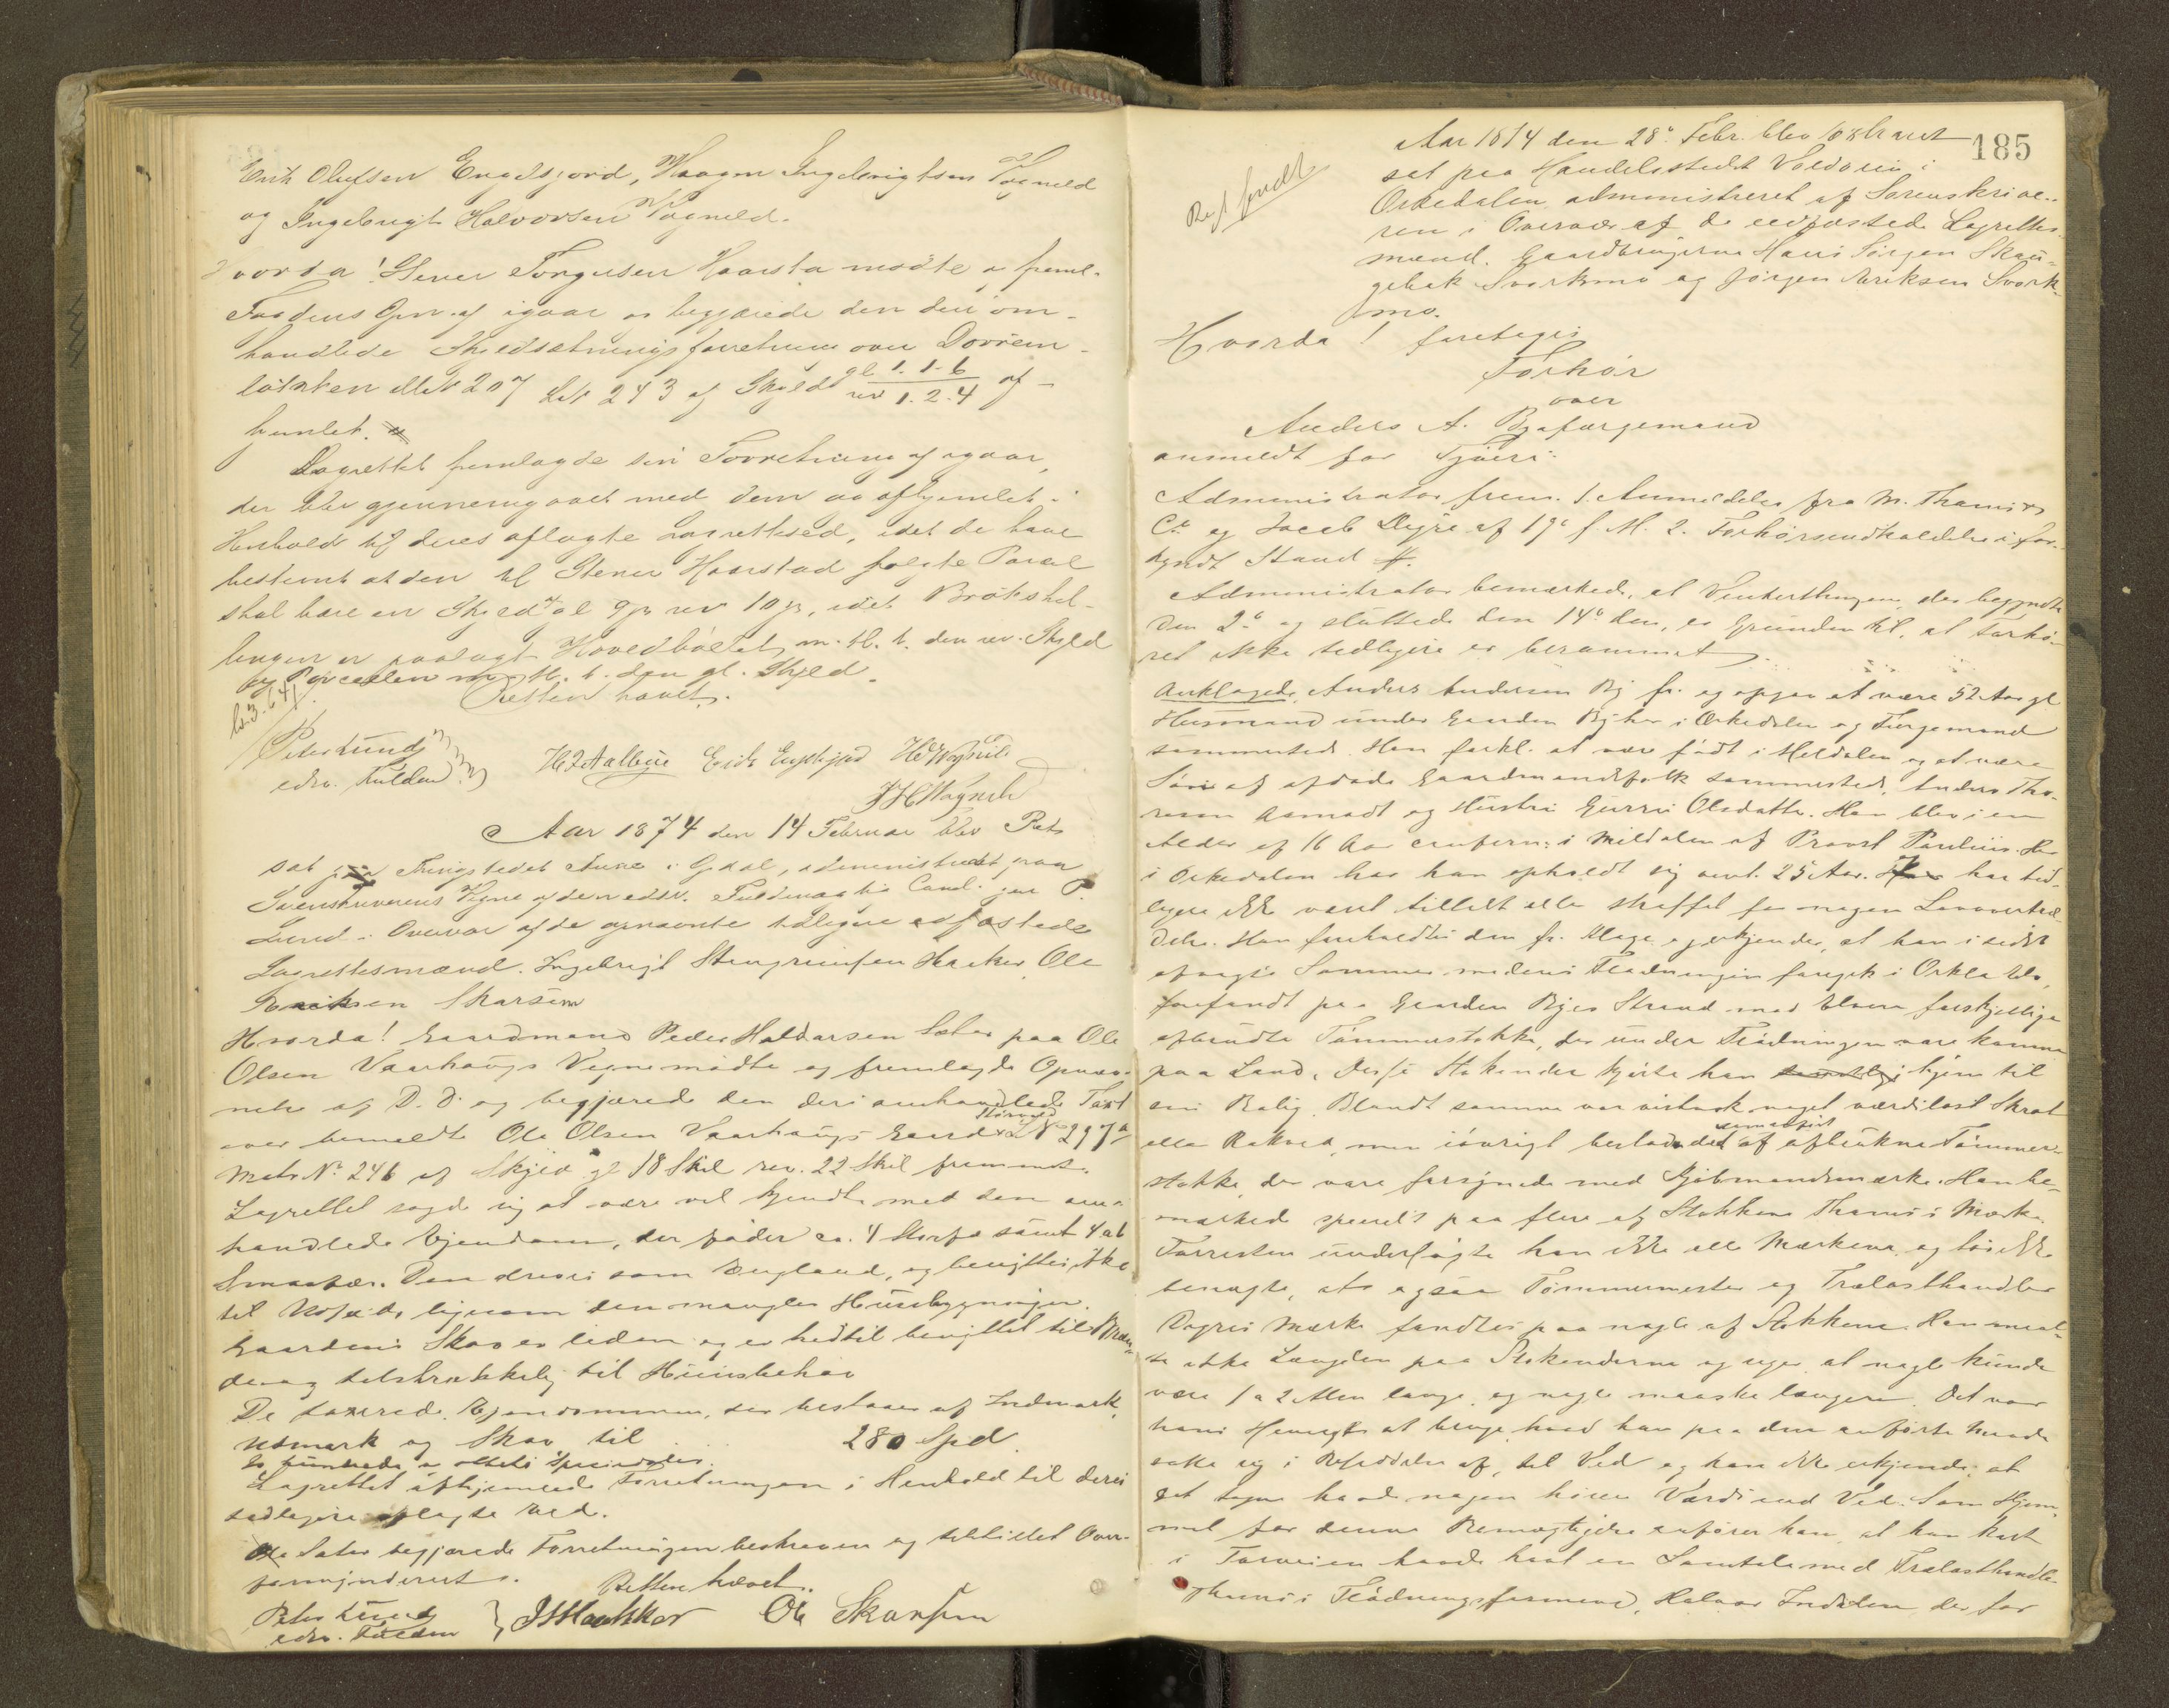 Erik Olufsen Engelsjord, Haagen Ingebrigtsen Vognild
og Ingebrigt Halvorsen Vognild.
Hvorda! Stener Torgersen Haarsta mødte og freml.
Fogdens Opn. af igaar og begjærede den deri om-
handlede Skyldsætningsforretning over
Mat N 207 LN 243 af Skyld gl 1. 1. 6 rev 1. 2. 4 af-
hjemlet.
Lagrettet fremlagde sin Forretning af igaar,
der blev gjennemgaaet med dem og afhjemlet i
Henhold til deres aflagte Lagrettesed, idet de have
bestemt at den til Stener Haarstad solgte Parcel
skal bære en Skyld af gl 9 β rev 10 β, idet Brøkskil-
lingen er paalagt Hovedbølet m. H. t. den rev. Skyld
og Parcellen m. H. t. den gl. Skyld.
Retten hævet.
Peter Lund
edsv. Fuldm.
Aar 1874 den 14 Februar blev Ret
sat paa Thingstedet Aune i Opdal, administreret paa
Sorenskriverens Vegne af den edsv. Fuldmægtig Cand. jur P.
Lund i Overvær af de opnævnte tidligere edfæstede
Lagrettesmænd. Ingebrigt Steingrimsen Haaker, Ole
Eriksen Skarsem
Hvorda! Gaardmand Peder Haldorsen Sæter paa Ole
Olsen Vaarhaugs Vegne mødte og fremlagde Opnæv-
nelse af D. D. og begjærede den deri omhandlede Taxt
over bemeldte Ole Olsen Vaarhaugs Gaard LN 297a
Matr No 246 af Skyld gl 18 Skil rev. 22 Skil fremmet.
Lagrettet sagde sig at være vel kjendte med den om-
handlede Eiendom, der føder ca. 4 Storfæ samt 4 a 6
Smaafæ. Den drives som England, og benyttes ikke
til ligesom den mangler Husebygninger.
Gaardens Skov er liden og er hidtil benyttet til Bræn-
de og tilstrækkelig til Huusbehov
De taxerede Ejendommen, der bestaaer af Indmark,
Udmark og Skov til 280 Spd.
to hundrede og otteti Speciedaler.
Lagrettet afhjemlede Forretningen i Henhold til deres
tidligere aflagte Eed.
Sæter begjærede Forretningen beskreven og tilstillet Over-
formynderiet.
Retten hævet.
Peter Lund
edsv. Fuldm
JSHaakker Ole Skarsem
185
Aar 1874 den 28de Febr. blev Forhørsret
sat paa Handelsstedet i
Orkedalen, administreret af Sorenskrive-
ren i Overvær af de eedfæstede Lagrettes-
mænd. Gaardbrugerne Hans Jørgen Skau-
gebak Svorkmo og Jørgen Eriksen Svork-
mo.
Hvorda! foretoges
Forhør
over
Anders A. By færgemand
anmeldt for Tjveri.
Administrator frem. 1. Anmeldelse fra M. Thams &
Co og Jacob Digre af 19de f. M. 2. Forhørsindkaldelse i for-
kyndt Stand.
Administrator bemærkede, at Vinterthingene, der begyndte
den 2de og sluttede den 14de ds, er Grunden til, at Forhø-
ret ikke tidligere er berammet.
Anklagede Anders Andersen By fr. og opgav at være 52 Aar gl
Husmand under Gaarden By her i Orkedalen og Færgemand
sammesteds. Han forkl. at være født i Meldalen og at være
Søn af afdøde Gaardmandsfolk sammesteds, Anders Tho-
resen Aamodt og Hustru Gurri Olsdatter. Han blev i en
Alder af 16 Aar confirm: i Meldalen af Provst Paulius. Her
i Orkedalen har han opholdt sig omt. 25 Aar. Han har tid-
ligere ikke været tiltalt eller straffet for nogen Lovovertræ-
delse. Han foreholdtes den fr. Klage og erkjender, at han i sidst
afvigte Sommer medens Flødningen foregik i Orkla Elv,
forefandt paa Gaarden Byes Strand mod Elven forskjellige
afbrudte Tømmerstokke, der under Flødningen vare komne
paa Land. Disse Stokender kjørte han hjem til
sin Bolig. Blandt samme var vistnok noget værdiløst Skrot
eller Rakved, men iøvrigt bestod det af afbrukne Tømmer-
stokke, der vare forsynede med Kjøbmandsmærke. Han be-
mærkede specielt paa flere af Stokkene Thams's Mærke.
Forresten undersøgte han ikke alle Mærkerne og tør ikke
benægte, at ogsaa Tømmermester og Trælasthandler
Digres Mærke fandtes paa nogle af Stokkene. Han maal-
te ikke Længden paa Stokenderne og siger, at nogle kunde
være 1 a 2 Alen lange, og nogle maaske længere. Det var
hans Hensigt at bruge, hvad han paa den anførte Maade
satte sig i Besiddelse af, til Ved og kan ikke erkjende, at
det tagne havde nogen høiere Værdi end Ved. Som Hjem-
mel for denne Bemægtigelse anfører han, at han
i Forveien havde havt en Samtale med Trælasthandler
Thams's Flødningsformand, Halvor Indalen, der for